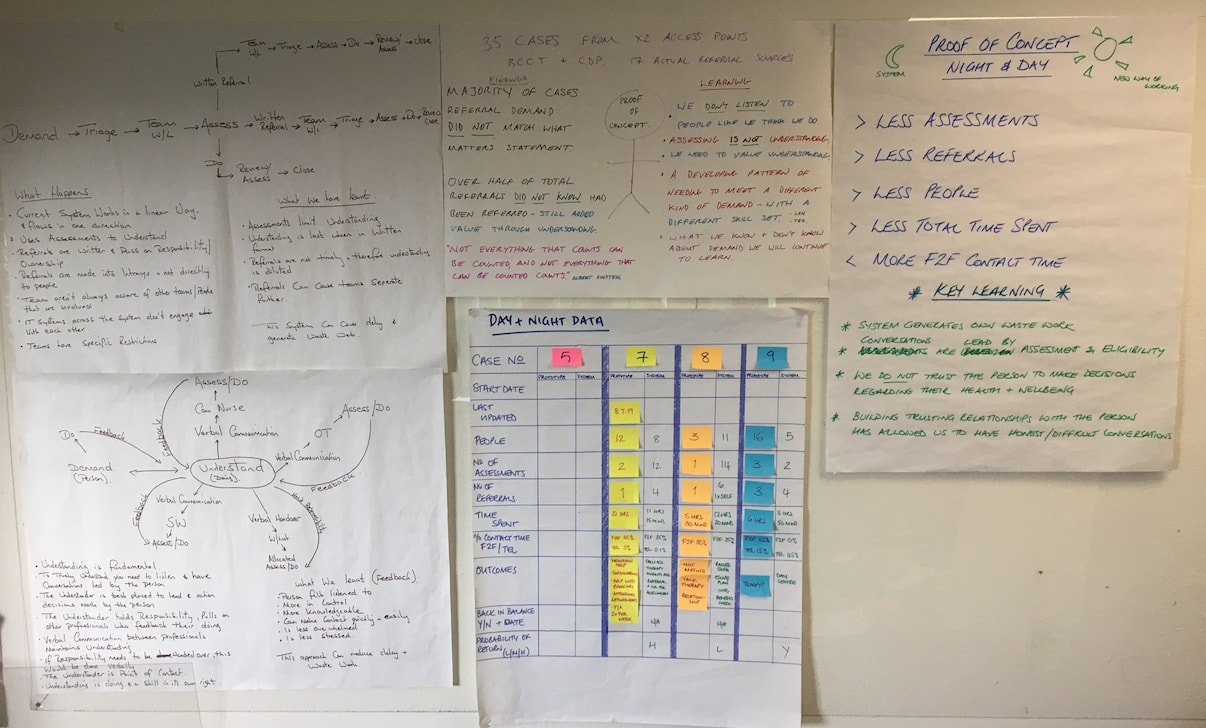 Team W/L → Triage → Assess → Do → Review/Assess → Close
Written Referral
Demand → Triage → Team W/L → Assess → Written Referral → Team W/L → Triage → Assess → Do → Review Close
Do → Review/Assess → Close
What Happens
• Current System Works in a linear Way.
& flows in one direction
• Uses Assessments to Understand
• Referrals are Written & Pass on Responsibility/
Ownership
• Referrals are made into letrays + not directly
to people.
• Team aren't always aware of other teams/People
that are involved
• IT Systems across the System don't engage
with each other
• Teams have Specific Restrictions
What We have learnt.
• Assessments limit Understanding
• Understanding is lost when in Written
format
• Referrals are not timely + therefore understanding
is diluted
• Referrals Can Cause teams Seperate
further.
This System Can Cause delay &
generate Waste Work.
35 CASES FROM X2 ACCESS POINTS
BCCT + CDP. 17 ACTUAL REFERRAL SOURCES
FINDINGS
MAJORITY OF CASES
REFERRAL DEMAND
DID NOT MATCH WHAT
MATTERS STATEMENT.
OVER HALF OF TOTAL
REFERRALS DID NOT KNOW HAD
BEEN REFERRED - STILL ADDED
VALUE THROUGH UNDERSTANDING.
"NOT EVERYTHING THAT COUNTS CAN
BE COUNTED, AND NOT EVERYTHING THAT
CAN BE COUNTED COUNTS." ALBERT EINSTEIN
PROOF
OF
CONCEPT.
LEARNING
• WE DON'T LISTEN TO
PEOPLE LIKE WE THINK WE DO
• ASSESSING IS NOT UNDERSTANDING
• WE NEED TO VALUE UNDERSTANDING
• A DEVELOPING PATTERN OF
NEEDING TO MEET A DIFFERENT
KIND OF DEMAND - WITH A
DIFFERENT SKILL SET.
• WHAT WE KNOW + DON'T KNOW
ABOUT DEMAND WE WILL CONTINUE
TO LEARN.
PROOF OF CONCEPT
NIGHT & DAY
SYSTEM
NEW WAY OF
WORKING
> LESS ASSESSMENTS
> LESS REFERRALS
> LESS PEOPLE
> LESS TOTAL TIME SPENT
< MORE F2F CONTACT TIME
* KEY LEARNING *
* SYSTEM GENERATES OWN WASTE WORK
CONVERSATIONS LEAD BY
* ARE ASSESSMENT & ELIGIBILITY
* WE DO NOT TRUST THE PERSON TO MAKE DECISIONS
REGARDING THEIR HEALTH + WELLBEING
* BUILDING TRUSTING RELATIONSHIPS WITH THE PERSON
HAS ALLOWED US TO HAVE HONEST/DIFFICULT CONVERSATIONS
Assess/Do
Com Nurse
Verbal Communication
Feedback
Do
Feedback
Demand
(Person).
Understand
(Doing).
Assess/Do
OT
Verbal Communication
Feedback
Verbal Communication
SW
Assess/Do
Feedback
Verbal Handover
W/List
Allocated
Assess/Do
• Understanding is fundamental.
• To Truly Understand you need to listen & have
Conversations led by the person
• The Understander is best placed to lead & action
decisions made by the person
• The Understander holds Responsibility, Pulls on
other professionals who feedback their doing
• Verbal Communication between professionals
Maintains Understanding
• If Responsibility needs to be handed over, this
Would be done Verbally
• The Understander is Point of Contact.
• Understanding is doing & a skill in its own right.
What We learnt (Feedback)
• Person felt listened to
• More in Control
• More Knowledgeable
• Can make Contact quickly + easily
• Is less overwhelmed
• Is less stressed.
This approach Can reduce delay +
Waste Work.
DAY + NIGHT DATA
CASE NO 5 7 8 9
PROTOTYPE SYSTEM PROTOTYPE SYSTEM PROTOTYPE SYSTEM PROTOTYPE SYSTEM
START DATE
LAST UPDATED 8.7.19
PEOPLE 12 8 3 11 16 5
NO OF ASSESSMENTS 2 12 1 14 3 2
NO OF REFERRALS 1 4 1 6 1xSELF 3 4
TIME SPENT 21 HRS 11 HRS 15 MINS 5 HRS 30 MINS 12 HRS 6 HRS
% CONTACT TIME F2F/TEL
OUTCOMES
DAY CENTRE
BACK IN BALANCE
Y/N + DATE N/A N/A
PROBABILITY OF
RETURN (L/M/H) H L Y